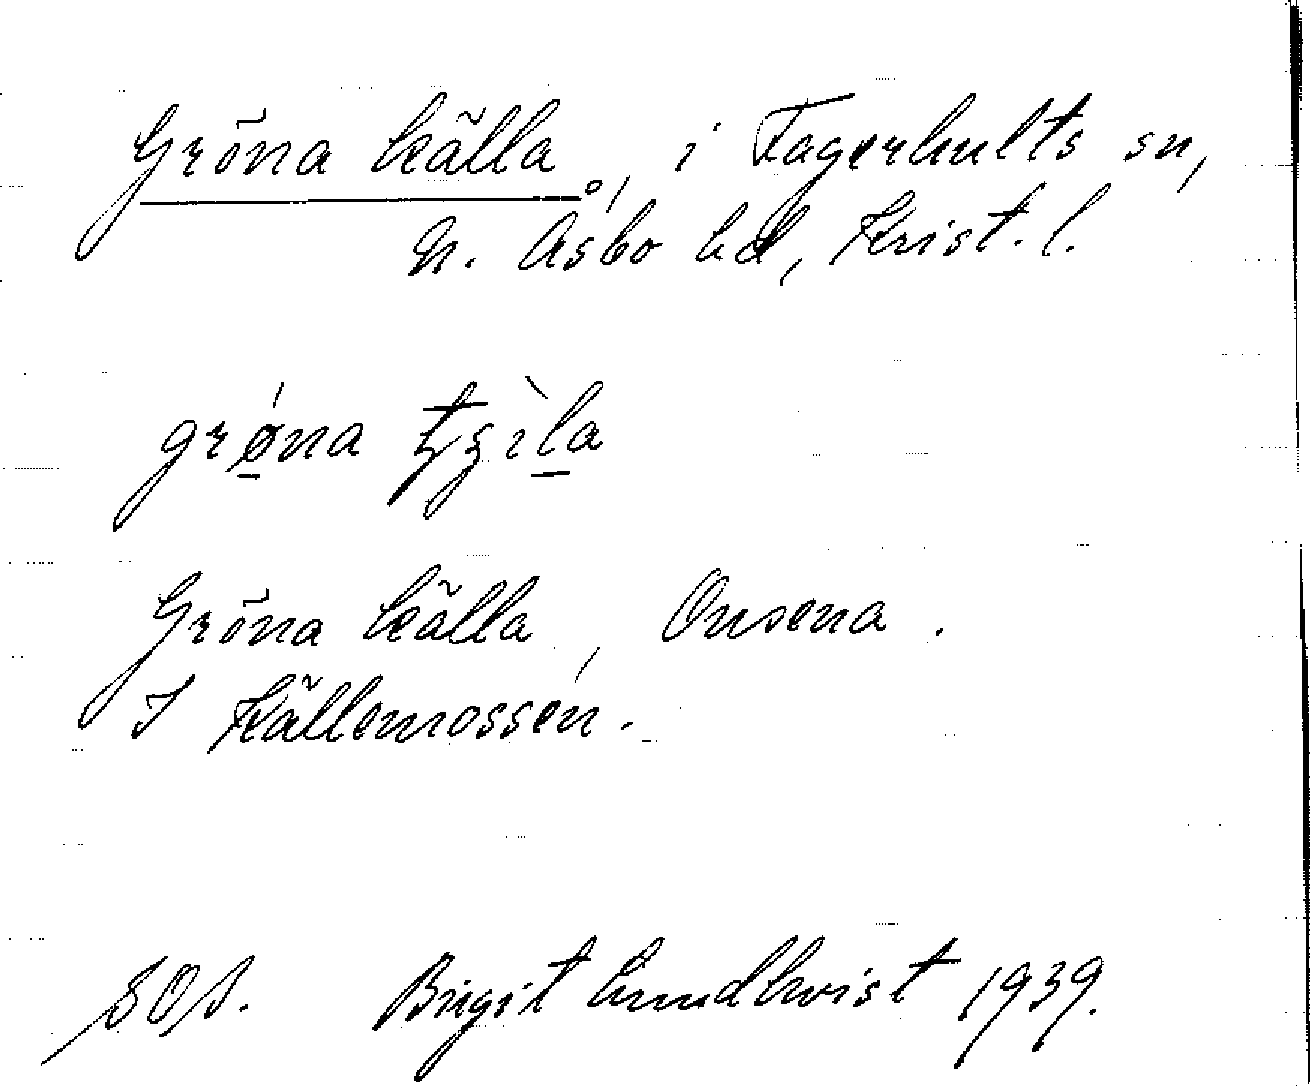 Gröna källa, i Fagerhults sn,
N. Åsbo hd, Krist. l.
Gröna källa, Onsena.
I Källemossen.
SOS. Birgit Lundkvist 1939.